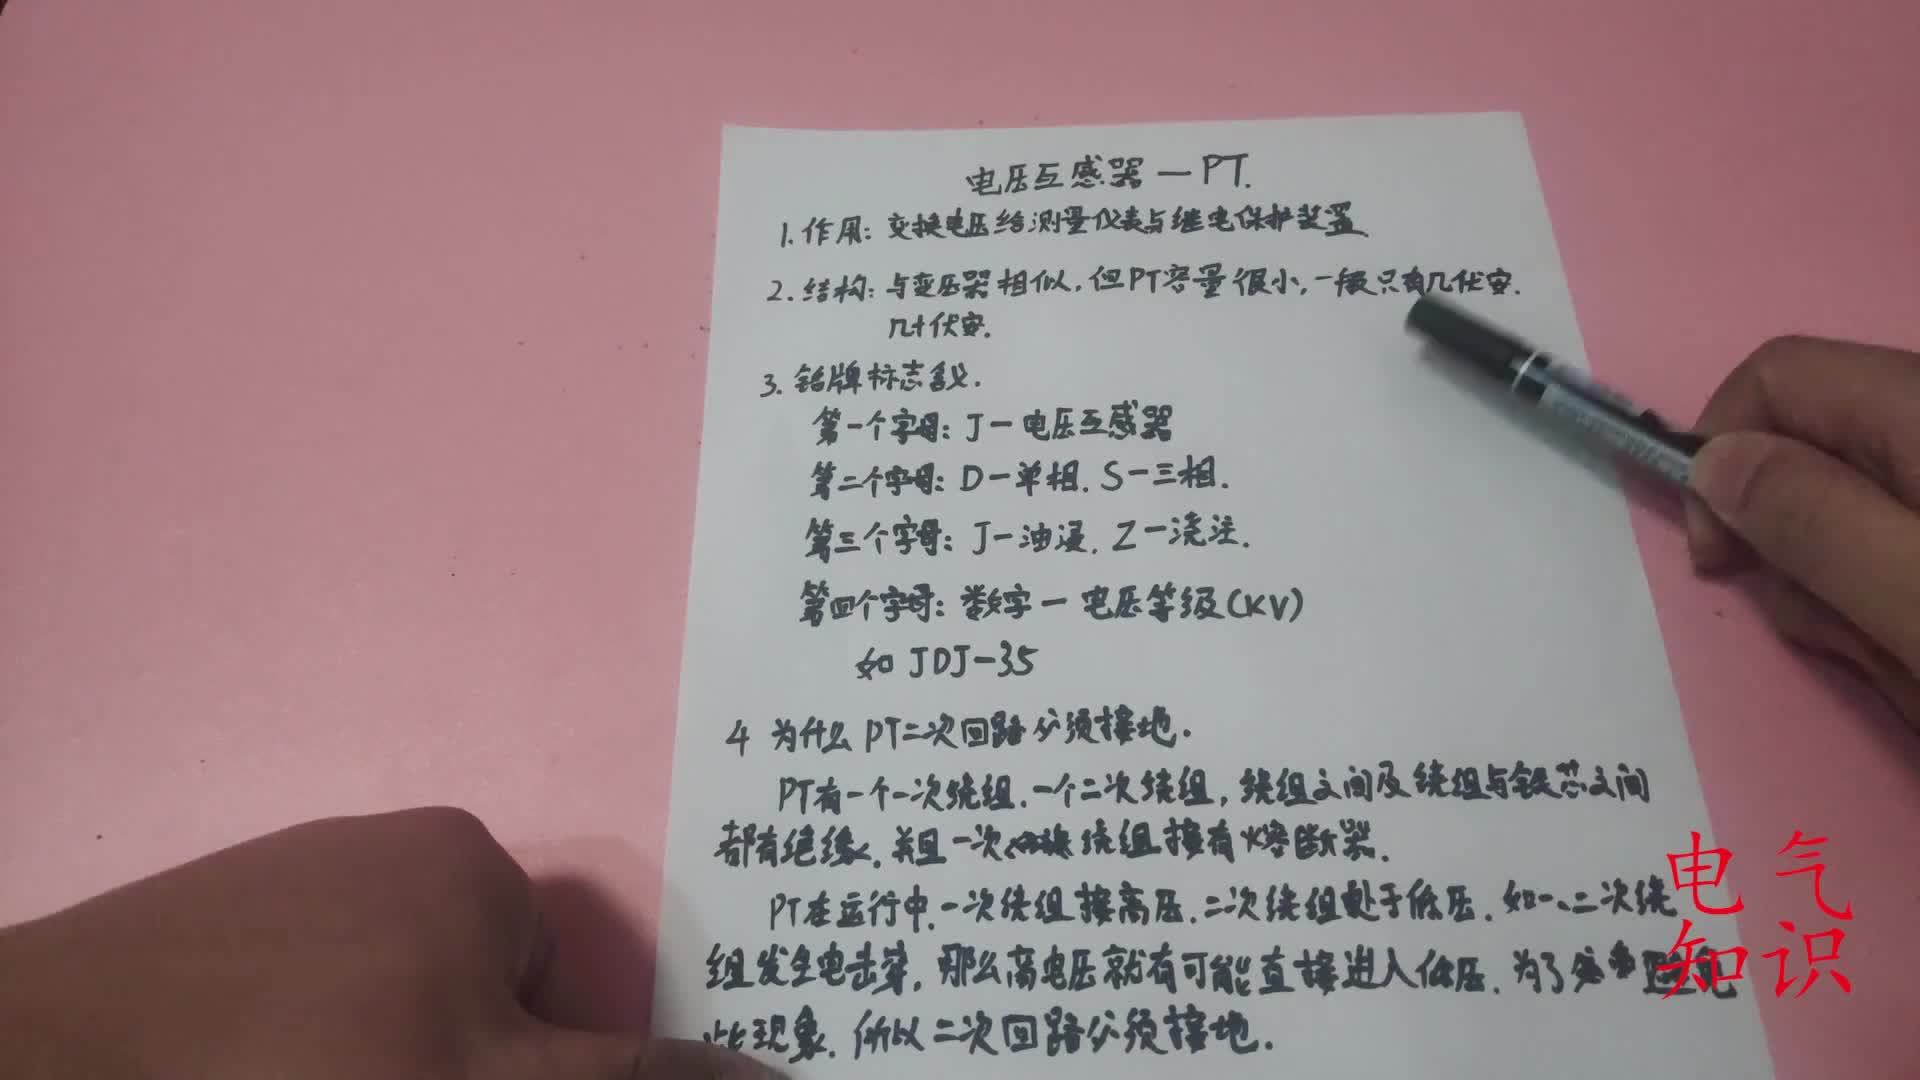 电压互感器—PT.
1.作用：变换电压给测量仪表与继电保护装置
2.结构：与变压器相似，但PT容量很小，一般只有几伏安.
几十伏安.
3.铭牌标志含义.
第一个字母：J—电压互感器
第二个字母：D—单相. S—三相.
第三个字母：J—油浸. Z—浇注.
第四个字母：数字—电压等级(KV)
如 JDJ-35
4 为什么PT二次回路必须接地.
PT有一个一次绕组.一个二次绕组，绕组之间及绕组与铁芯之间
都有绝缘.并且一次绕组接有熔断器.
PT在运行中.一次绕组接高压.二次绕组处于低压.如一、二次绕
组发生电击穿，那么高电压就有可能直接进入低压.为了
现象.所以二次回路必须接地.
电气
知识